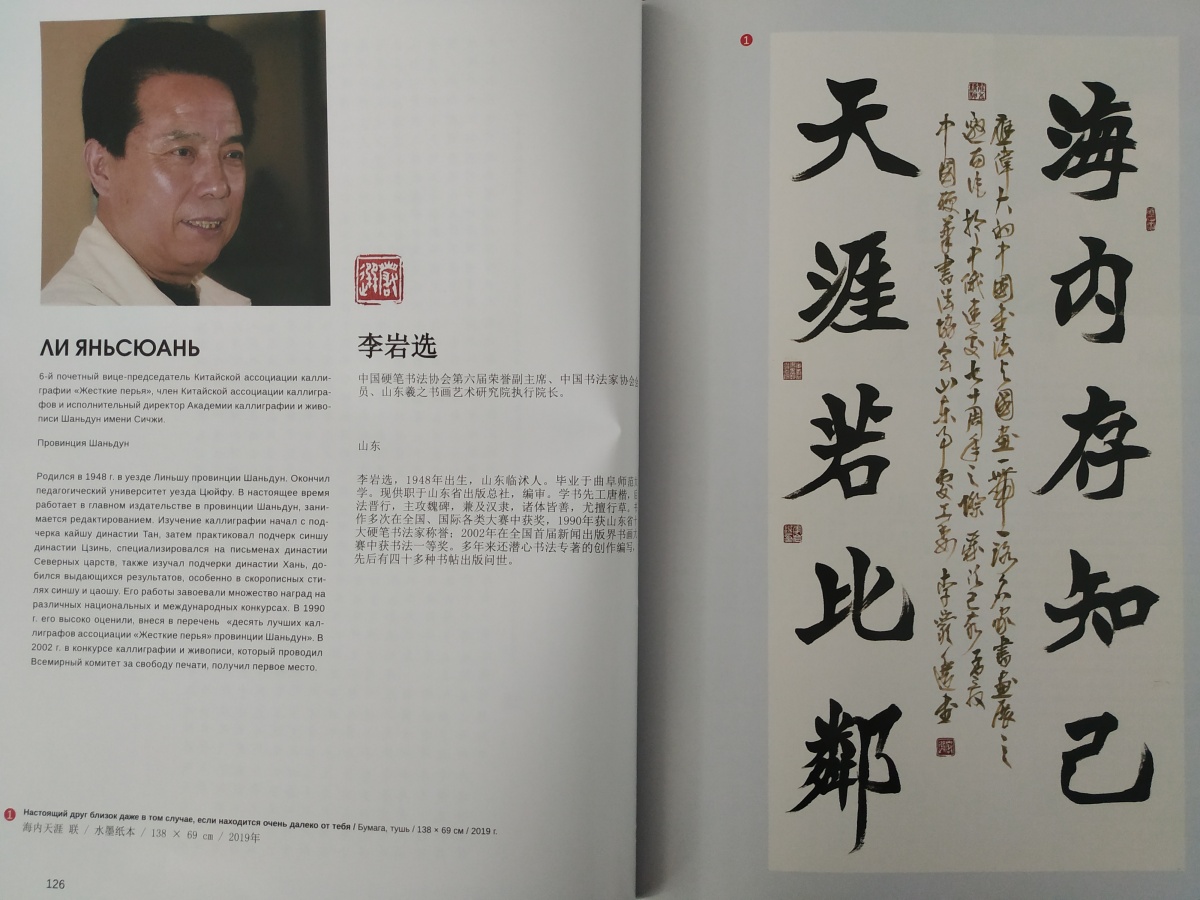 ЛИ ЯНЬСЮАНЬ
6-й почетный вице-председатель Китайской ассоциации калли-
графии «Жесткие перья», член Китайской ассоциации каллигра-
фов и исполнительный директор Академии каллиграфии и живо-
писи Шаньдун имени Сичжи.
Провинция Шаньдун
Родился в 1948 г. в уезде Линьшу провинции Шаньдун. Окончил
педагогический университет уезда Цюйфу. В настоящее время
работает в главном издательстве в провинции Шаньдун, зани-
мается редактированием. Изучение каллиграфии начал с под-
черка кайшу династии Тан, затем практиковал подчерк синшу
династии Цзинь, специализировался на письменах династии
Северных царств, также изучал подчерки династии Хань, до-
бился выдающихся результатов, особенно в скорописных сти-
лях синшу и цаошу. Его работы завоевали множество наград на
различных национальных и международных конкурсах. В 1990
г. его высоко оценили, внеся в перечень «десять лучших кал-
лиграфов ассоциации «Жесткие перья» провинции Шаньдун». В
2002 г. в конкурсе каллиграфии и живописи, который проводил
Всемирный комитет за свободу печати, получил первое место.
李岩选
中国硬笔书法协会第六届荣誉副主席、中国书法家协会
员、山东羲之书画艺术研究院执行院长。
山东
李岩选，1948年出生，山东临沭人。毕业于曲阜师范
学。现供职于山东省出版总社，编审。学书先工唐楷，
法晋行，主攻魏碑，兼及汉隶，诸体皆善，尤擅行草，
作多次在全国、国际各类大赛中获奖，1990年获山东省
大硬笔书法家称誉；2002年在全国首届新闻出版界书画
赛中获书法一等奖。多年来还潜心书法专著的创作编写，
先后有四十多种书帖出版问世。
1 Настоящий друг близок даже в том случае, если находится очень далеко от тебя / Бумага, тушь / 138 × 69 см / 2019 г.
海内天涯 联 / 水墨纸本 / 138 × 69 cm / 2019年
126
1
海内存知己
天涯若比鄰